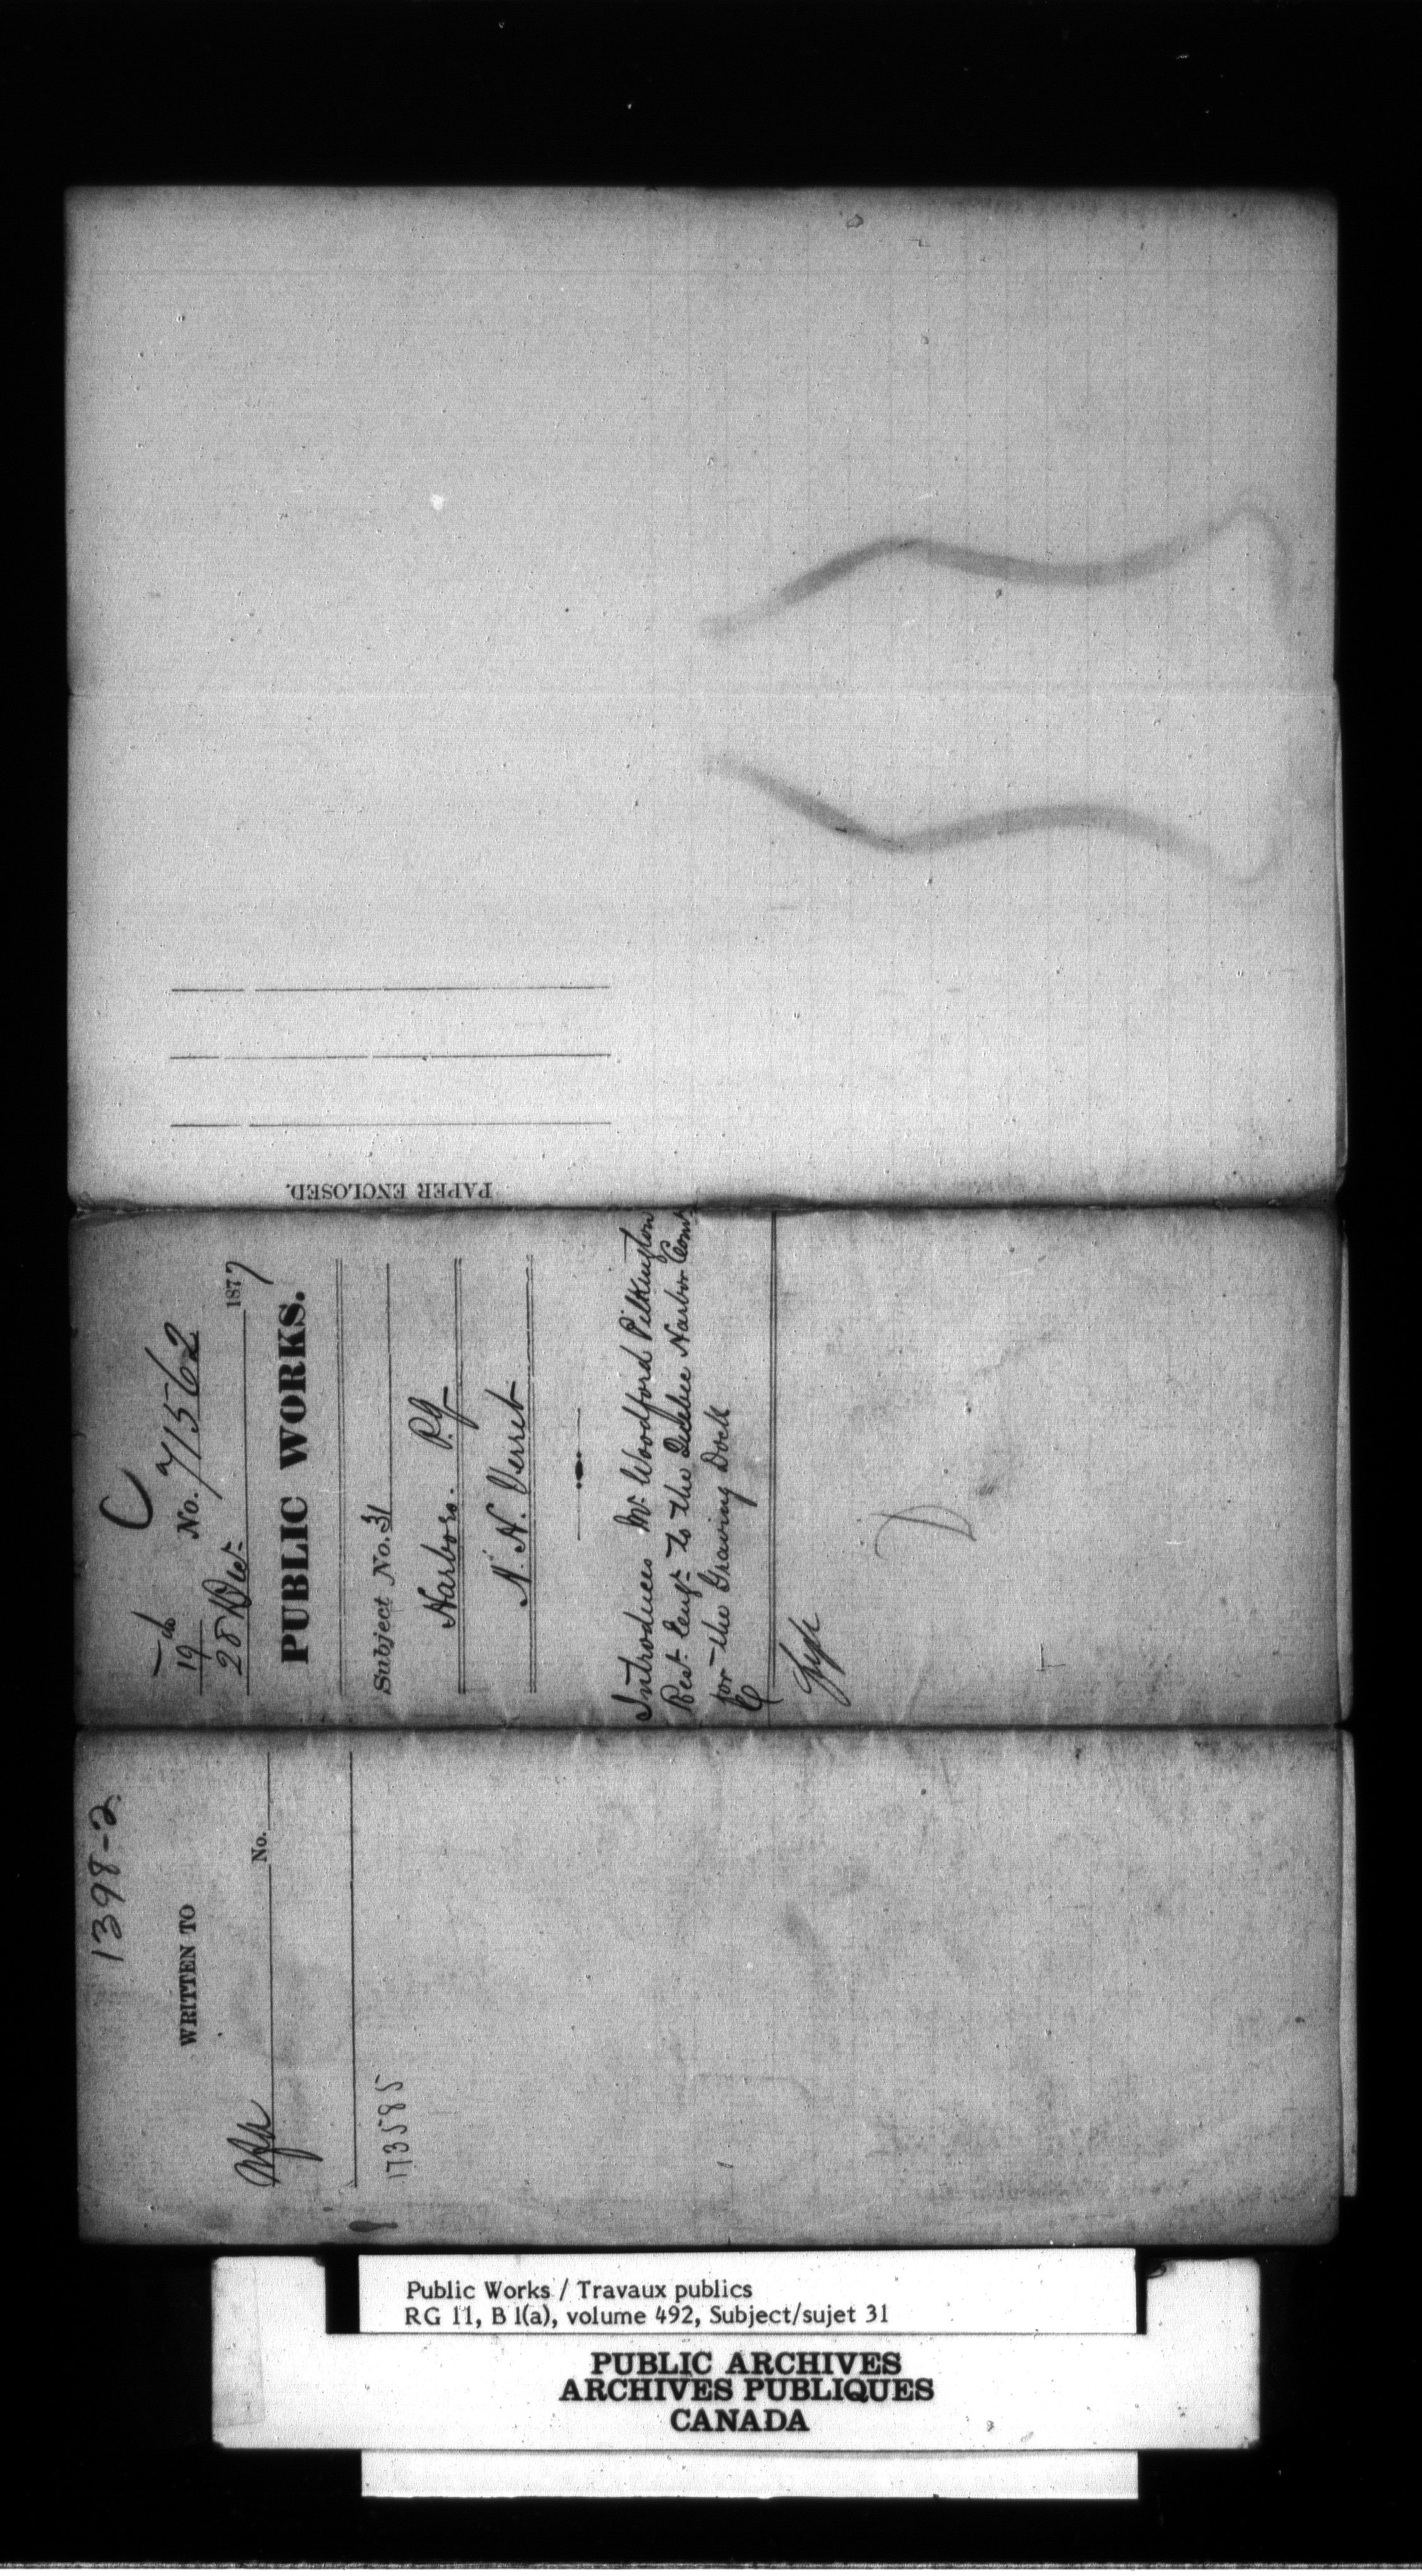 PAPER ENCLOSED.
C
19
No. 71562
28 Decr. 1877
PUBLIC WORKS.
Subject No. 31
Harbors. P.Q
A. H. Verret
Introduces Mr. Woodford Pilkington
Rest. Engr. to the Quebec Harbor Comrs.
for the Graving Dock
1398-2
WRITTEN TO
No.
173585
Public Works / Travaux publics
RG 11, B 1(a), volume 492, Subject/sujet 31
PUBLIC ARCHIVES
ARCHIVES PUBLIQUES
CANADA